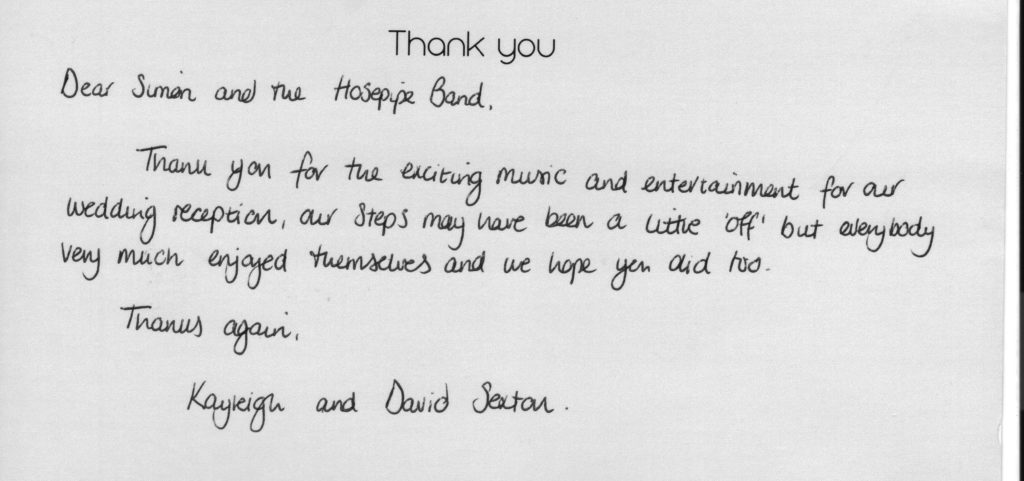 Thank you
Dear Simon and the Hosepipe Band,
Thank you for the exciting music and entertainment for our
wedding reception, our steps may have been a little 'off' but everybody
very much enjoyed themselves and we hope you did too.
Thanks again,
Kayleigh and David Sexton.